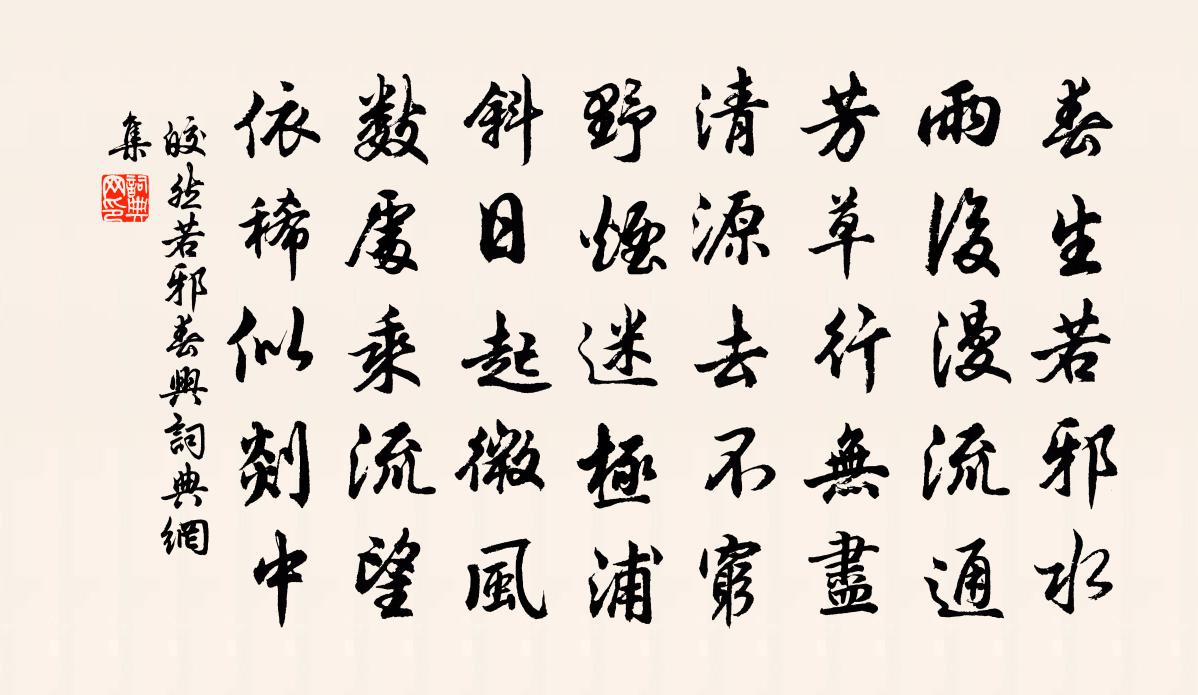 春生若邪水
雨後漫流通
芳草行無盡
清源去不窮
野煙迷極浦
斜日起微風
數處乘流望
依稀似剡中
皎然若邪春興詞典網
集
詞典
网印